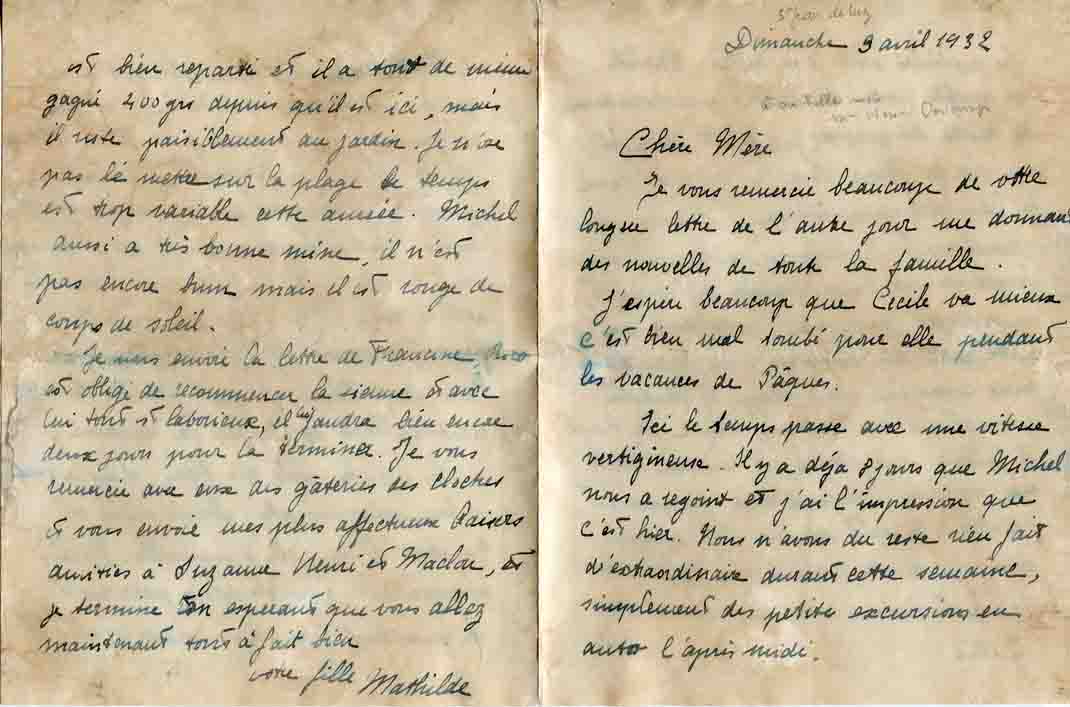 St Jean de Luz
Dimanche 3 avril 1932
Chère Mère
Je vous remercie beaucoup de votre
longue lettre de l'autre jour me donnant
des nouvelles de toute la famille.
J'espère beaucoup que Cecile va mieux
c'est bien mal tombé pour elle pendant
les vacances de Pâques.
Ici le temps passe avec une vitesse
vertigineuse. Il y a déja 8 jours que Michel
nous a rejoint et j'ai l'impression que
c'est hier. Nous n'avons du reste rien fait
d'extraordinaire durant cette semaine,
simplement des petites excursions en
auto l'après midi.
est bien reparti et il a tout de même
gagné 400 grs depuis qu'il est ici, mais
il reste paisiblement au jardin. Je n'ose
pas le mettre sur la plage le temps
est trop variable cette année. Michel
aussi a très bonne mine, il n'est
pas encore brun mais il est rouge de
coups de soleil.
Je vous envoie la lettre de Francine,
est obligé de recommencer la sienne et avec
lui tout est laborieux, il lui faudra bien encore
deux jours pour la terminer. Je vous
remercie avec eux des gâteries des cloches
et vous envoie mes plus affectueux baisers
amitiés à Suzanne Henri et Maclou, et
je termine en esperant que vous allez
maintenant tout à fait bien
votre fille Mathilde